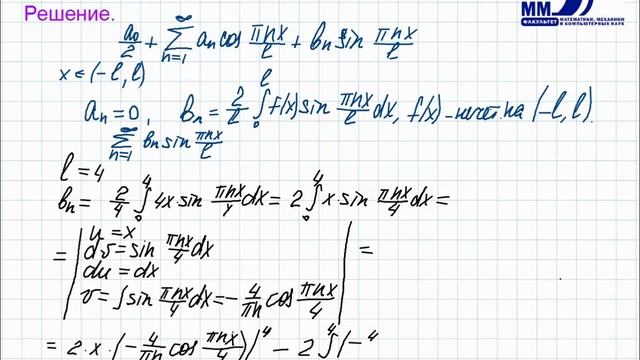 Решение.
ММ
ФАКУЛЬТЕТ
МАТЕМАТИКИ, МЕХАНИКИ
И КОМПЬЮТЕРНЫХ НАУК
a₀/2 + ∑_{n=1}^{∞} aₙ cos πnx/l + bₙ sin πnx/l
x ∈ (-l, l)
aₙ = 0, bₙ = 2/l ∫₀^l f(x) sin πnx/l dx, f(x) – нечет. на (-l, l).
∑_{n=1}^{∞} bₙ sin πnx/l
l = 4
bₙ = 2/4 ∫₀⁴ 4x · sin πnx/4 dx = 2 ∫₀⁴ x · sin πnx/4 dx =
= | u = x
dv = sin πnx/4 dx
du = dx
v = ∫ sin πnx/4 dx = - 4/πn cos πnx/4 | =
= 2 · x · (- 4/πn cos πnx/4) |⁴ - 2 ∫⁴ (- 4